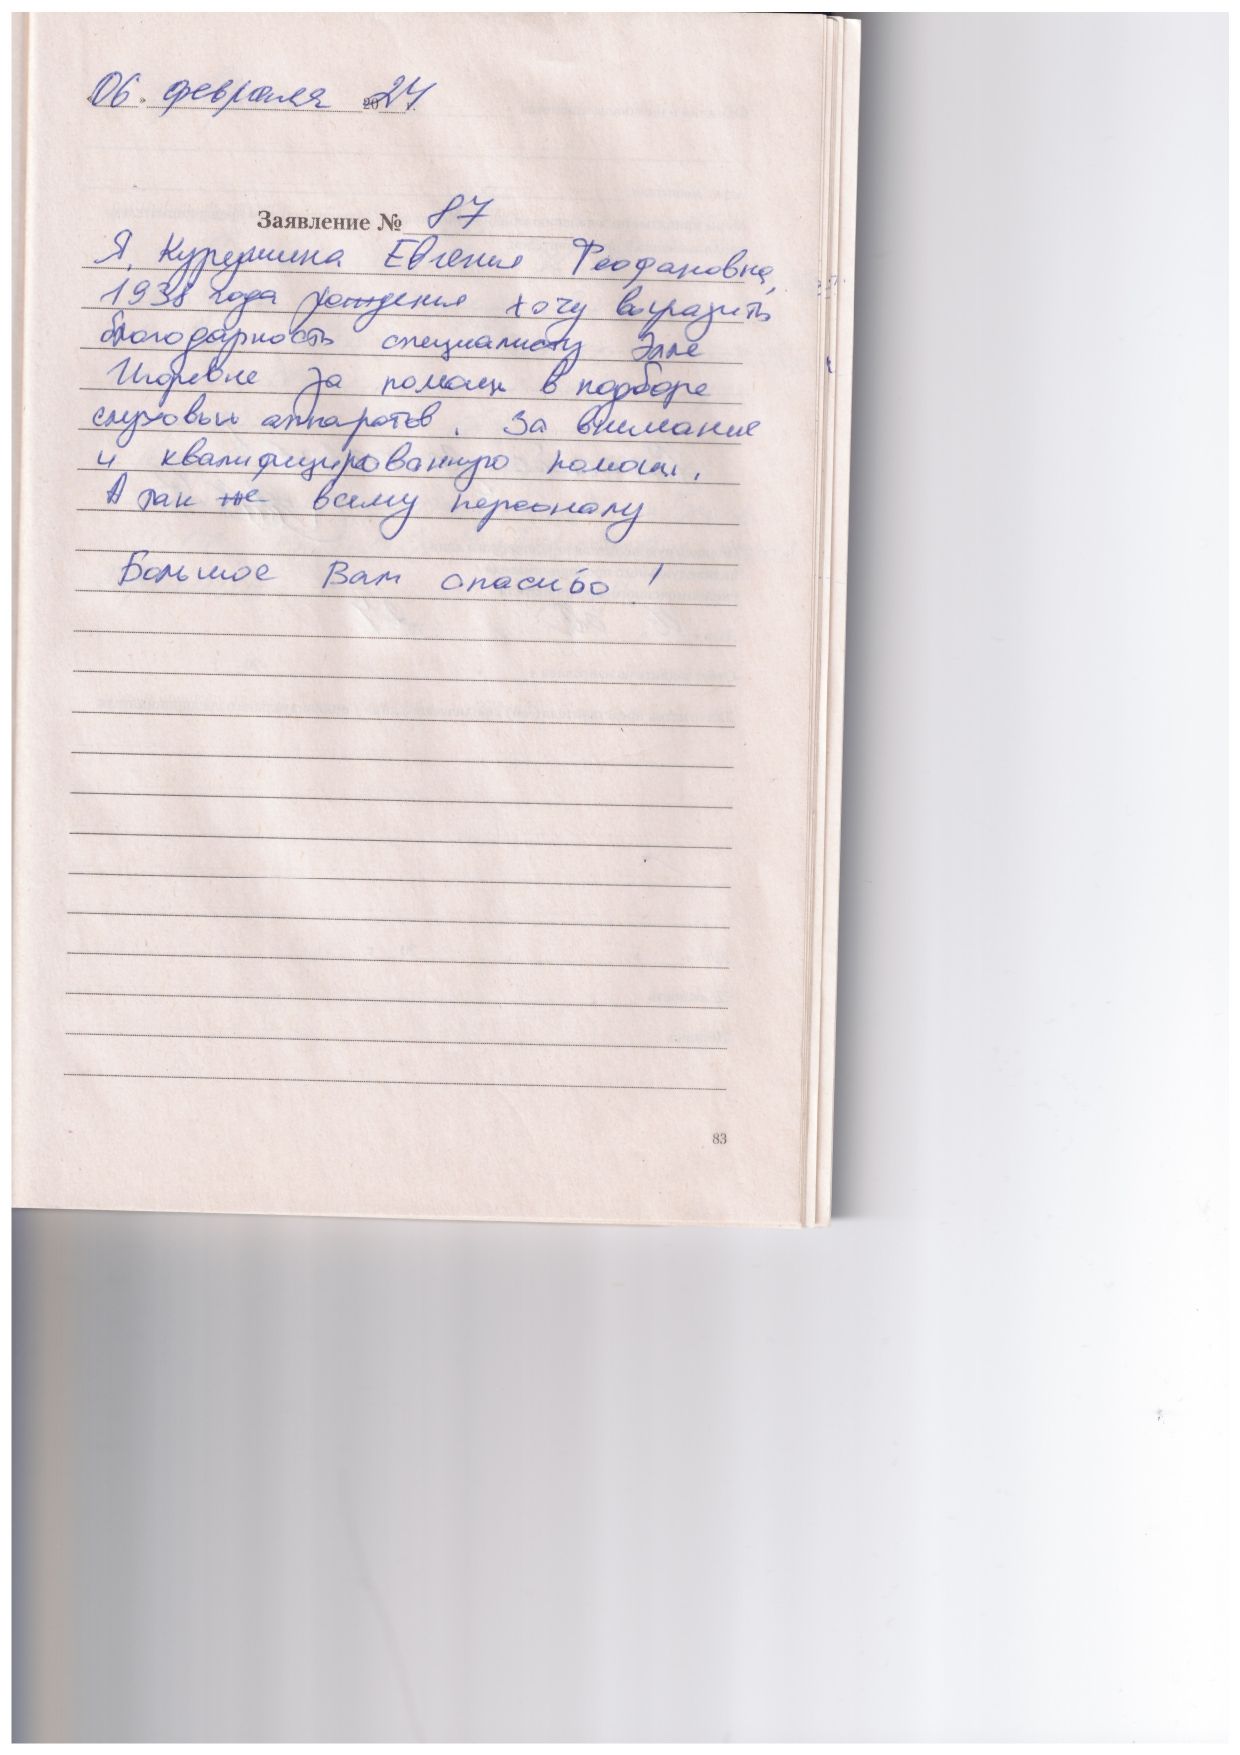 «06» февраля 2024 г.
Заявление № 87
Я, Евгения Феофановна,
1938 года рождения хочу выразить
благодарность специалисту Элле
Игоревне за помощь в подборе
слуховых аппаратов. За внимание
и квалифицированную помощь.
А так же всему персоналу
Большое Вам спасибо!
83